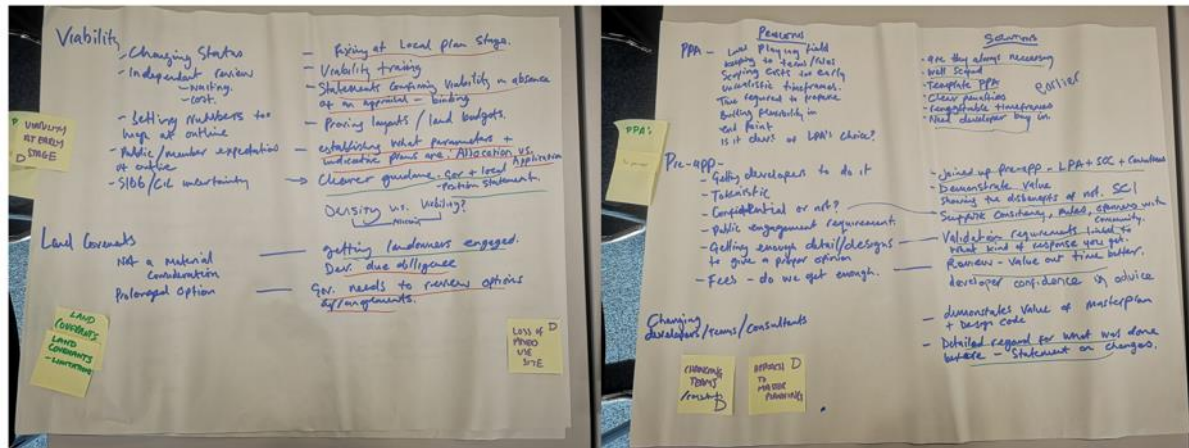 Viability
- Changing Status
- Independent review
- Waiting.
- Cost.
- Setting numbers too high at outline
- Public/member expectation at outline
- S106/CIL uncertainty
- Fixing at Local plan stage.
- Viability training
- Statements confirming viability in absence of an appraisal - binding
- Proving layouts / land budgets.
- establishing what parameters + indicative plans are. Allocation vs. Application
Clearer guidance. Gov + local
- Position Statement.
Density vs. Viability?
Land Covenants
Not a material consideration
Prolonged Option
getting landowners engaged.
Dev. due dilligence
Gov. needs to review options arrangements.
VIABILITY
AT EARLY
STAGE
D
LAND
COVENANTS
LAND
COVENANTS
- LIMITATIONS
LOSS OF D
MIXED
USE
SITE
PPA - Level Playing field
keeping to terms/roles
Scoping exists too early
unrealistic timeframes.
Time required to prepare
Building flexibility in
end point
Is it devs. or LPA's choice?
Solutions
- are they always necessary
- Well scoped
- Template PPA
earlier
- Clear penalties
- renegotiable timeframes
- Need developer buy in.
PPA's
Pre-app -
- Getting developers to do it
- Tokenistic
- Confidential or not?
- Public engagement requirement.
- Getting enough detail/designs to give a proper opinion
- Fees - do we get enough.
- Joined up pre-app - LPA + SCC + Consultees
- Demonstrate value
showing the disbenefits of not. SCI
- Support consistency, Members, openness with community.
- Validation requirements linked to what kind of response you get.
- Review - value our time better.
developer confidence in advice
Changing
developers/teams/consultants
- demonstrates value of masterplan + Design code
- Detailed regard for what was done before - Statement on changes.
CHANGING
TEAMS
D
APPROACH D
TO
MASTER
PLANNING